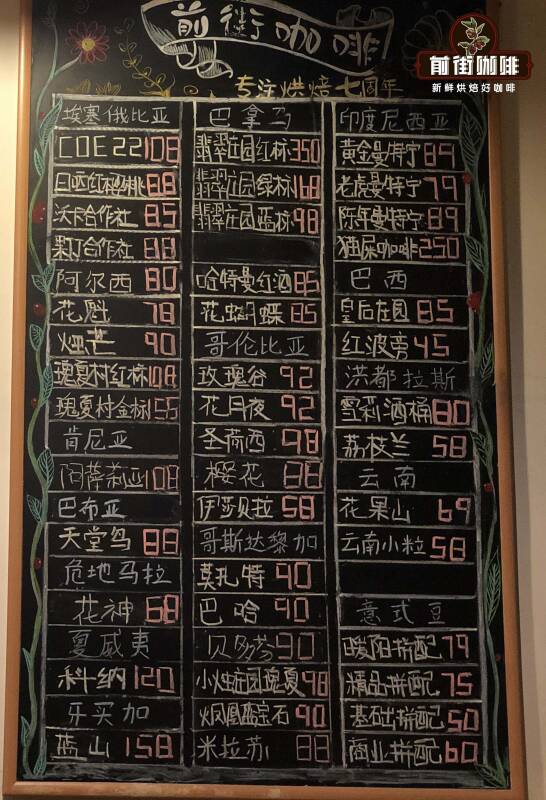 前街咖啡
前街咖啡
新鲜烘焙好咖啡
专注烘焙七周年
埃塞俄比亚
COE22 108
日晒红樱桃 88
沃卡合作社 85
果丁合作社 88
阿尔西 80
花魁 78
烟芒 90
瑰夏村红标 108
瑰夏村金标 155
肯尼亚
阿萨莉亚 108
巴布亚
天堂鸟 88
危地马拉
花神 68
夏威夷
科纳 120
牙买加
蓝山 158
巴拿马
翡翠庄园红标 350
翡翠庄园绿标 168
翡翠庄园蓝标 98
哈特曼红酒 85
花蝴蝶 85
哥伦比亚
玫瑰谷 92
花月夜 92
圣荷西 98
樱花 88
伊莎贝拉 58
哥斯达黎加
莫扎特 90
巴哈 90
贝多芬 90
小烛庄园瑰夏 98
火凤凰 宝石 90
米拉苏 88
印度尼西亚
黄金曼特宁 89
老虎曼特宁 79
陈年曼特宁 89
猫屎咖啡 250
巴西
皇后庄园 85
红波旁 45
洪都拉斯
雪莉酒桶 80
荔枝兰 58
云南
花果山 69
云南小粒 58
意式豆
暖阳拼配 79
精品拼配 75
基础拼配 50
商业拼配 60